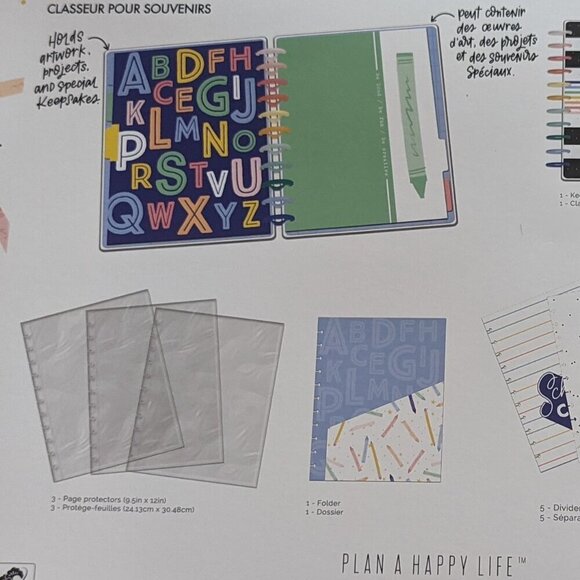 CLASSEUR POUR SOUVENIRS
Holds
artwork,
projects,
and special
keepsakes
peut contenir
des œuvres
d'art, des projets
et des souvenirs
spéciaux.
ABDFH
CEGIJ
KLMNO
PRSTVU
QWXYZ
1 - Ke
1 - Cla
ABDFH
CEGIJ
KLM
3 - Page protectors (9.5in x 12in)
3 - Protège-feuilles (24.13cm x 30.48cm)
1 - Folder
1 - Dossier
5 - Divide
5 - Sépara
PLAN A HAPPY LIFE™